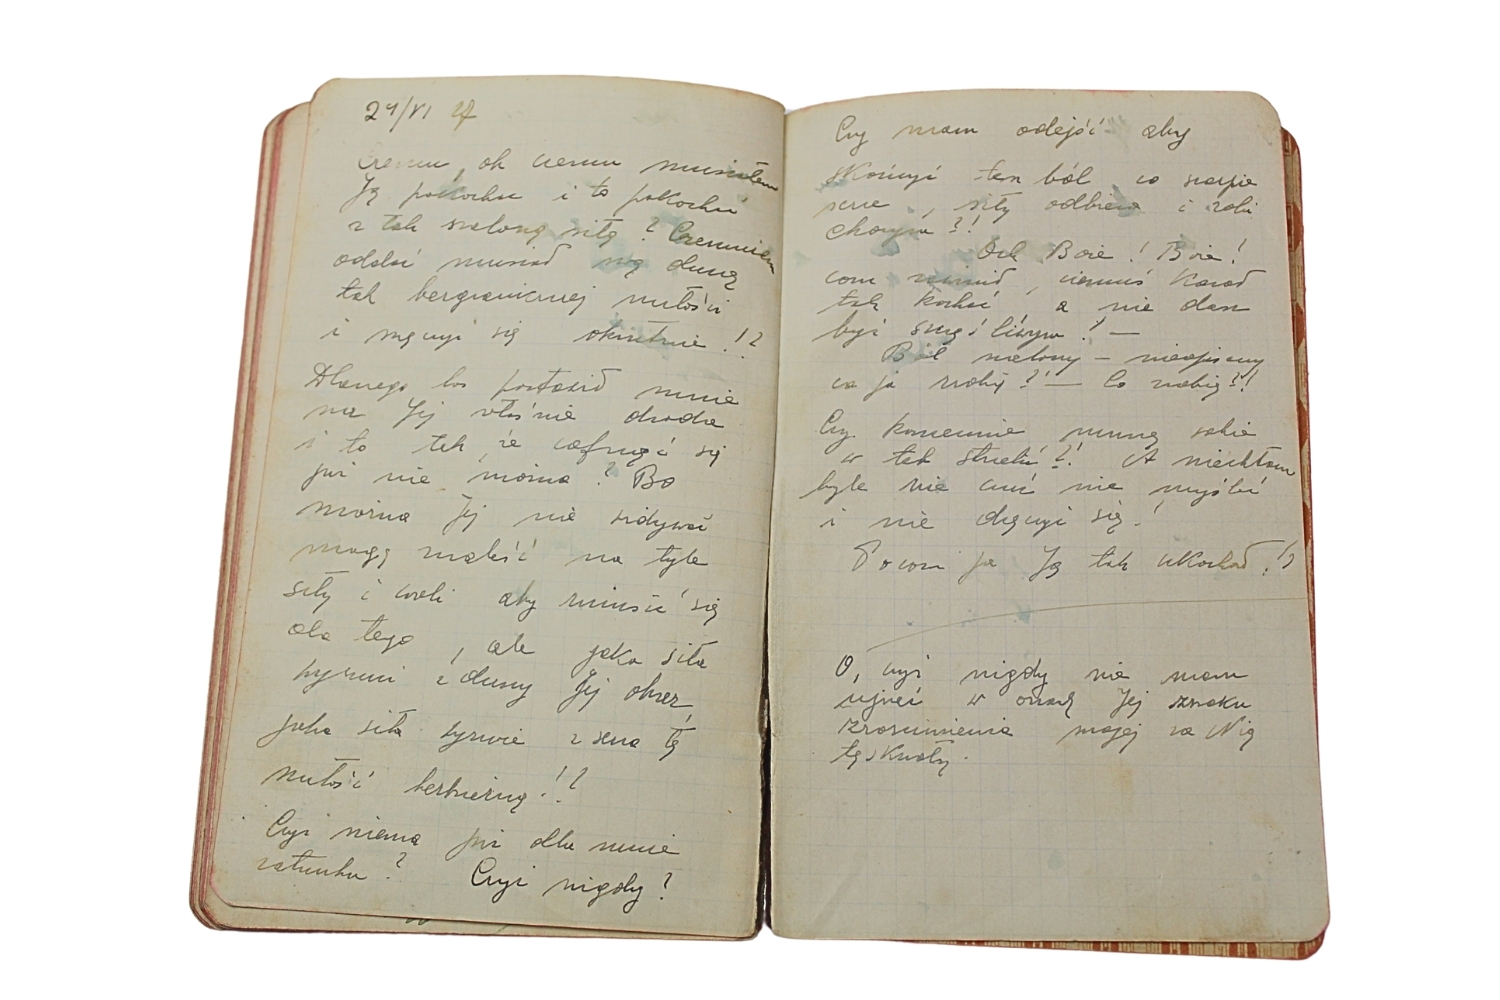 24/VI
Czemu, oh czemu musiałem
Ją pokochać i to pokochać
z tak szaloną siłą? Czemuem
oddać musiał mą duszę
tak bezgranicznej miłości
i męczyć się okrutnie!?
Dlaczego los postawił mnie
na Jej właśnie drodze
i to tak że cofnąć się
już nie można? Bo
można Jej nie widywać
mogę znaleść na tyle
siły i woli aby zmusić się
do tego, ale jaka siła
wyrwie z duszy Jej obraz,
jaka siła wyrwie z serca tę
miłość bezbrzeżną!?
Czyż niema już dla mnie
ratunku? Czyż nigdy?
Czy mam odejść aby
skończyć ten ból co szarpie
serce, siły odbiera i robi
chorym?!
Och Boże! Boże!
com zawinił, czemuś kazał
tak kochać a nie dasz
być szczęśliwym! —
Ból szalony — nieopisany
co ja zrobię? — Co zrobię?!
Czy koniecznie muszę sobie
w łeb strzelić?! A niechtam
byle nie czuć nie myśleć
i nie dręczyć się.!
Pocom ja Ją tak ukochał!?
O, czyż nigdy nie mam
ujrzeć w oczach Jej znaku
zrozumienia mojej za Nią
tęsknoty.